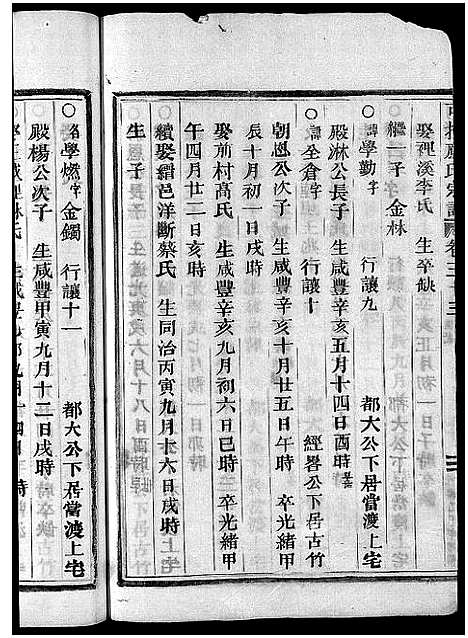 娶裡溪李氏 生卒缺
繼一子 金林
學勤字 行讓九 都大公下居當渡上宅
殿淋公長子 生咸豐辛亥五月十四日酉時
全倉字 行讓十 經畧公下居古竹
朝恩公次子 生咸豐辛亥十月廿五日午時 卒光緒甲
辰十月初一日戌時
娶前村高氏 生咸豐辛亥九月初六日巳時 卒光緒甲
午四月廿二日亥時
續娶縉邑洋斷蔡氏 生同治丙寅九月十六日戌時
生
學燃字 金鐲 行讓十一 都大公下居當渡上宅
殿楊公次子 生咸豐甲寅九月十三日戌時